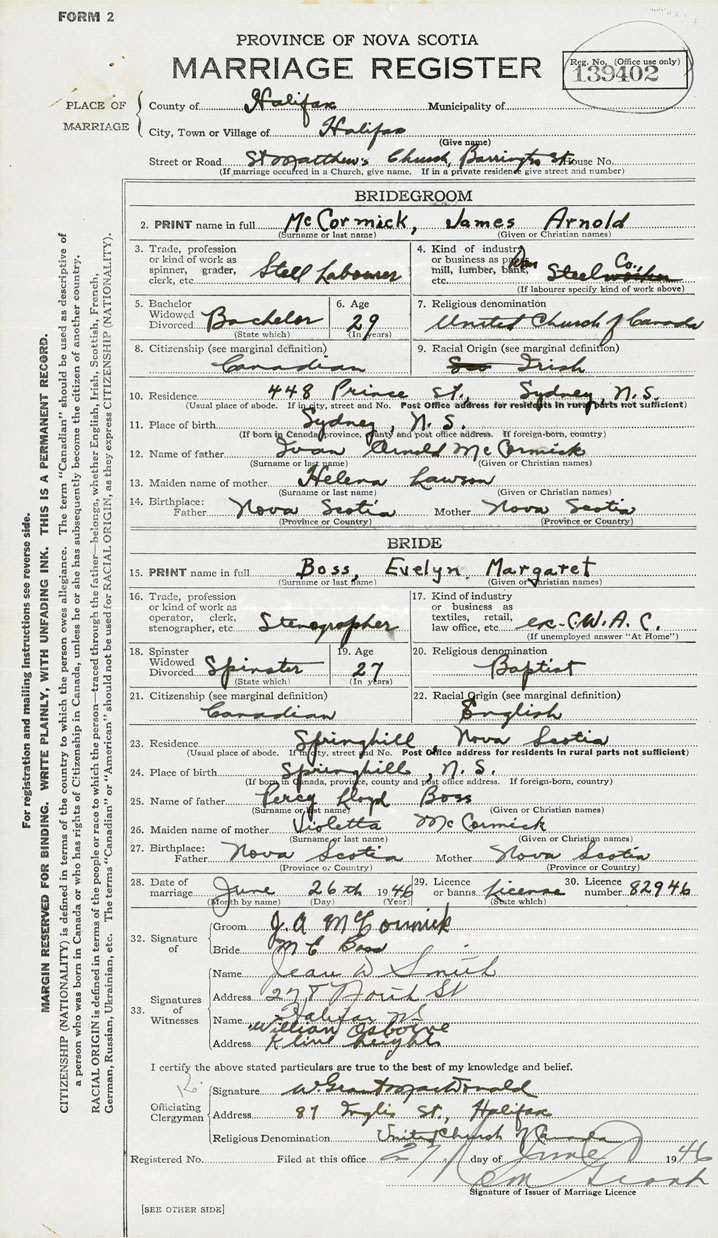 FORM 2
PROVINCE OF NOVA SCOTIA
MARRIAGE REGISTER
Reg. No. (Office use only)
139402
PLACE OF MARRIAGE
County of Halifax Municipality of
City, Town or Village of Halifax
(Give name)
Street or Road St Matthew's Church, Barrington St. House No.
(If marriage occurred in a Church, give name. If in a private residence give street and number)
BRIDEGROOM
2. PRINT name in full McCormick, James Arnold
(Surname or last name) (Given or Christian names)
3. Trade, profession or kind of work as spinner, grader, clerk, etc. Stell Labourer
4. Kind of industry or business as mill, lumber, bank, etc. Steel Co.
(If labourer specify kind of work above)
5. Bachelor Widowed Divorced Bachelor (State which)
6. Age 29 (In years)
7. Religious denomination United Church of Canada
8. Citizenship (see marginal definition) Canadian
9. Racial Origin (see marginal definition) Irish
10. Residence 448 Prince St., Sydney, N.S.
(Usual place of abode. If in city, street and No. Post Office address for residents in rural parts not sufficient)
11. Place of birth Sydney, N.S.
(If born in Canada, province, county and post office address. If foreign-born, country)
12. Name of father Ivan Arnold McCormick
(Surname or last name) (Given or Christian names)
13. Maiden name of mother Helena Lawson
(Surname or last name) (Given or Christian names)
14. Birthplace: Father Nova Scotia Mother Nova Scotia
(Province or Country) (Province or Country)
BRIDE
15. PRINT name in full Boss, Evelyn Margaret
(Surname or last name) (Given or Christian names)
16. Trade, profession or kind of work as operator, clerk, stenographer, etc. Stenographer
17. Kind of industry or business as textiles, retail, law office, etc. ex-C.W.A.C.
(If unemployed answer "At Home")
18. Spinster Widowed Divorced Spinster (State which)
19. Age 27 (In years)
20. Religious denomination Baptist
21. Citizenship (see marginal definition) Canadian
22. Racial Origin (see marginal definition) English
23. Residence Springhill, Nova Scotia
(Usual place of abode. If in city, street and No. Post Office address for residents in rural parts not sufficient)
24. Place of birth Springhill, N.S.
(If born in Canada, province, county and post office address. If foreign-born, country)
25. Name of father Percy Lloyd Boss
(Surname or last name) (Given or Christian names)
26. Maiden name of mother Violetta McCormick
(Surname or last name) (Given or Christian names)
27. Birthplace: Father Nova Scotia Mother Nova Scotia
(Province or Country) (Province or Country)
28. Date of marriage June 26th 1946
(Month by name) (Day) (Year)
29. Licence or banns. License (State which)
30. Licence number 82946
32. Signature of
Groom J.A McCormick
Bride M E Boss
33. Signatures of Witnesses
Name Jean D Smith
Address 278 North St
Halifax NS
Name William Osborne
Address Kline Heights
I certify the above stated particulars are true to the best of my knowledge and belief.
Officiating Clergyman
Signature W. Grant MacDonald
Address 87 Inglis St., Halifax
Religious Denomination United Church of Canada
Registered No. Filed at this office 27 day of June 1946
Grant
Signature of Issuer of Marriage Licence
[SEE OTHER SIDE]
For registration and mailing instructions see reverse side.
MARGIN RESERVED FOR BINDING. WRITE PLAINLY, WITH UNFADING INK. THIS IS A PERMANENT RECORD.
CITIZENSHIP (NATIONALITY) is defined in terms of the country to which the person owes allegiance. The term "Canadian" should be used as descriptive of
a person who was born in Canada or who has rights of Citizenship in Canada, unless he or she has subsequently become the citizen of another country.
RACIAL ORIGIN is defined in terms of the people or race to which the person—traced through the father—belongs, whether English, Irish, Scottish, French,
German, Russian, Ukrainian, etc. The terms "Canadian" or "American" should not be used for RACIAL ORIGIN, as they express CITIZENSHIP (NATIONALITY).